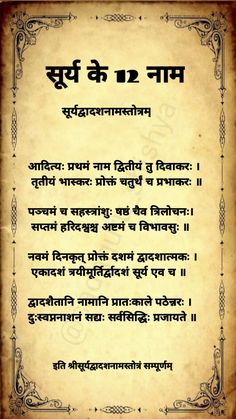 सूर्य के 12 नाम
सूर्यद्वादशनामस्तोत्रम्
आदित्यः प्रथमं नाम द्वितीयं तु दिवाकरः ।
तृतीयं भास्करः प्रोक्तं चतुर्थं च प्रभाकरः ॥
पञ्चमं च सहस्त्रांशुः षष्ठं चैव त्रिलोचनः।
सप्तमं हरिदश्वश्च अष्टमं च विभावसुः ॥
नवमं दिनकृत् प्रोक्तं दशमं द्वादशात्मकः ।
एकादशं त्रयीमूर्तिर्द्वादशं सूर्य एव च ॥
द्वादशैतानि नामानि प्रातःकाले पठेन्नरः ।
दुःस्वप्ननाशनं सद्यः सर्वसिद्धिः प्रजायते ॥
इति श्रीसूर्यद्वादशनामस्तोत्रं सम्पूर्णम्